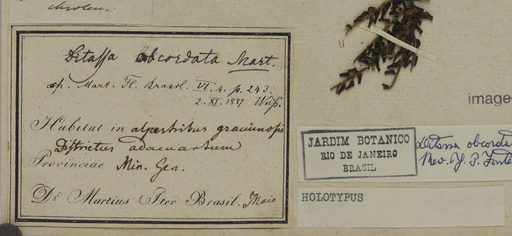 Ditassa obcordata Mart.
ap. Mart. Fl. Brasil. VI. 4. p. 243.
2. XI. 1887
Habitat in alpestribus graminosis
Districtus adamantum
Provinciae Min. Gen.
Dr Martius Iter Brasil. Maio
JARDIM BOTANICO
RIO DE JANEIRO
BRASIL
Ditassa obcorda
Rev. J. P. Fonte
HOLOTYPUS
image